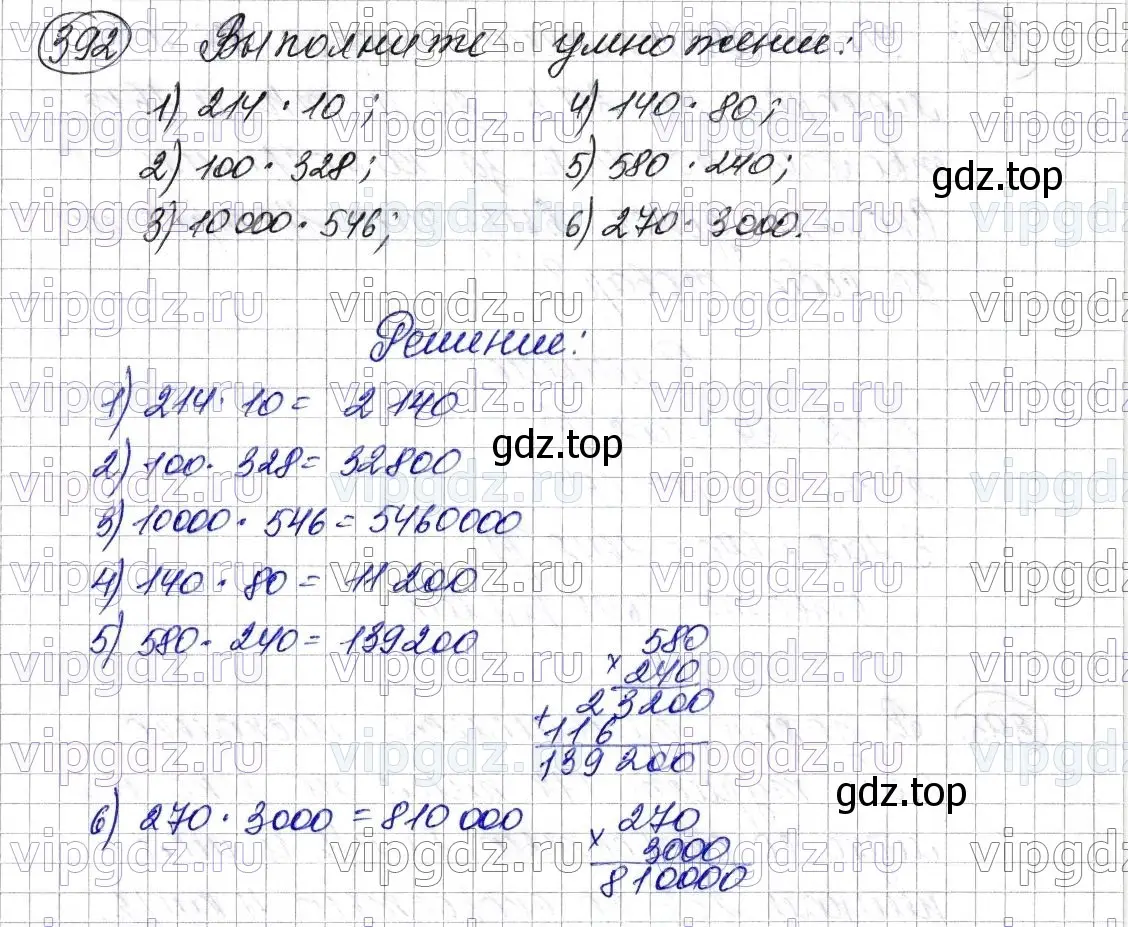 392 Выполните умножение:
1) 214 · 10; 4) 140 · 80;
2) 100 · 328; 5) 580 · 240;
3) 10000 · 546; 6) 270 · 3000.
gdz.top
Решение:
1) 214 · 10 = 2140
2) 100 · 328 = 32800
gdz.top
3) 10000 · 546 = 5460000
4) 140 · 80 = 11200
5) 580 · 240 = 139200
580
× 240
23200
+ 116
139200
6) 270 · 3000 = 810 000
gdz.top
270
× 3000
810000
vipgdz.ru